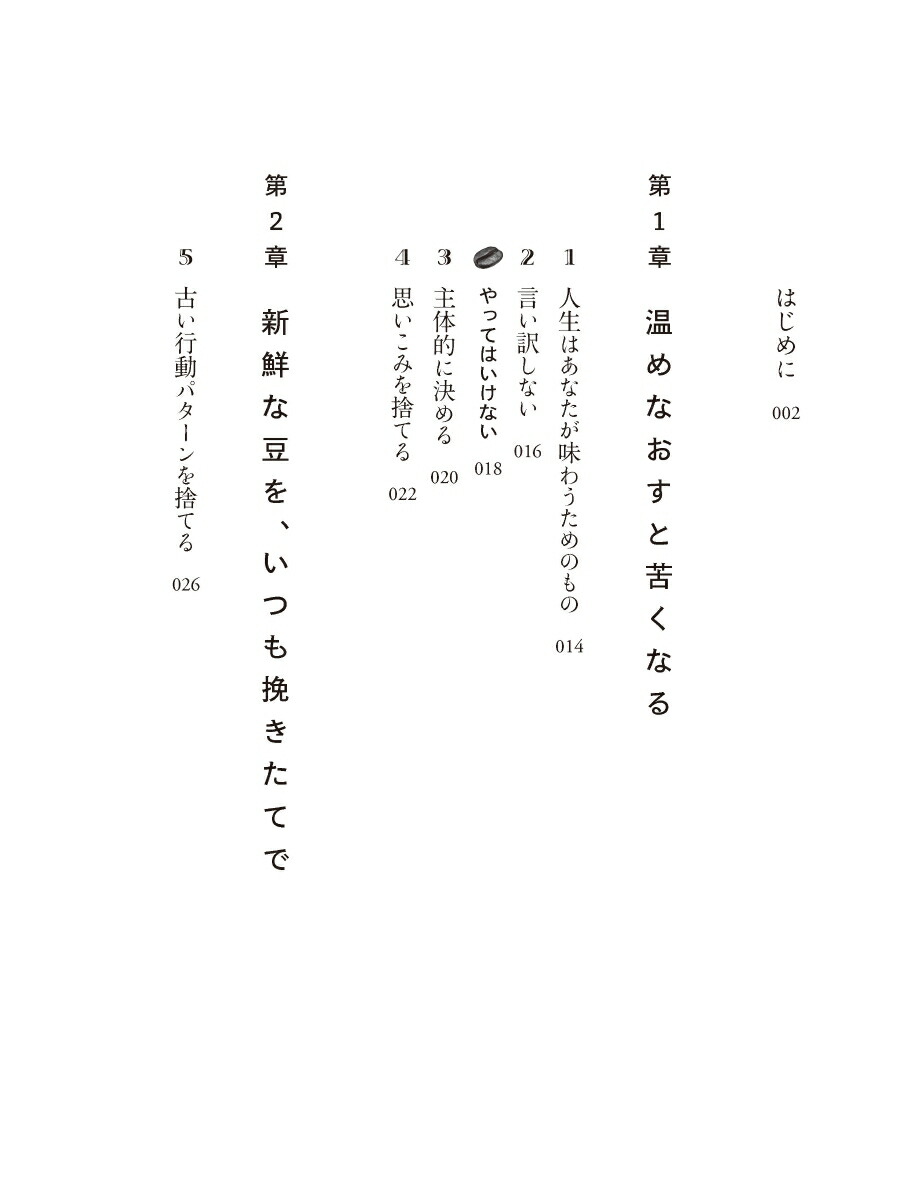 はじめに 002
第1章 温めなおすと苦くなる
1 人生はあなたが味わうためのもの 014
2 言い訳しない 016
やってはいけない 018
3 主体的に決める 020
4 思いこみを捨てる 022
第2章 新鮮な豆を、いつも挽きたてで
5 古い行動パターンを捨てる 026